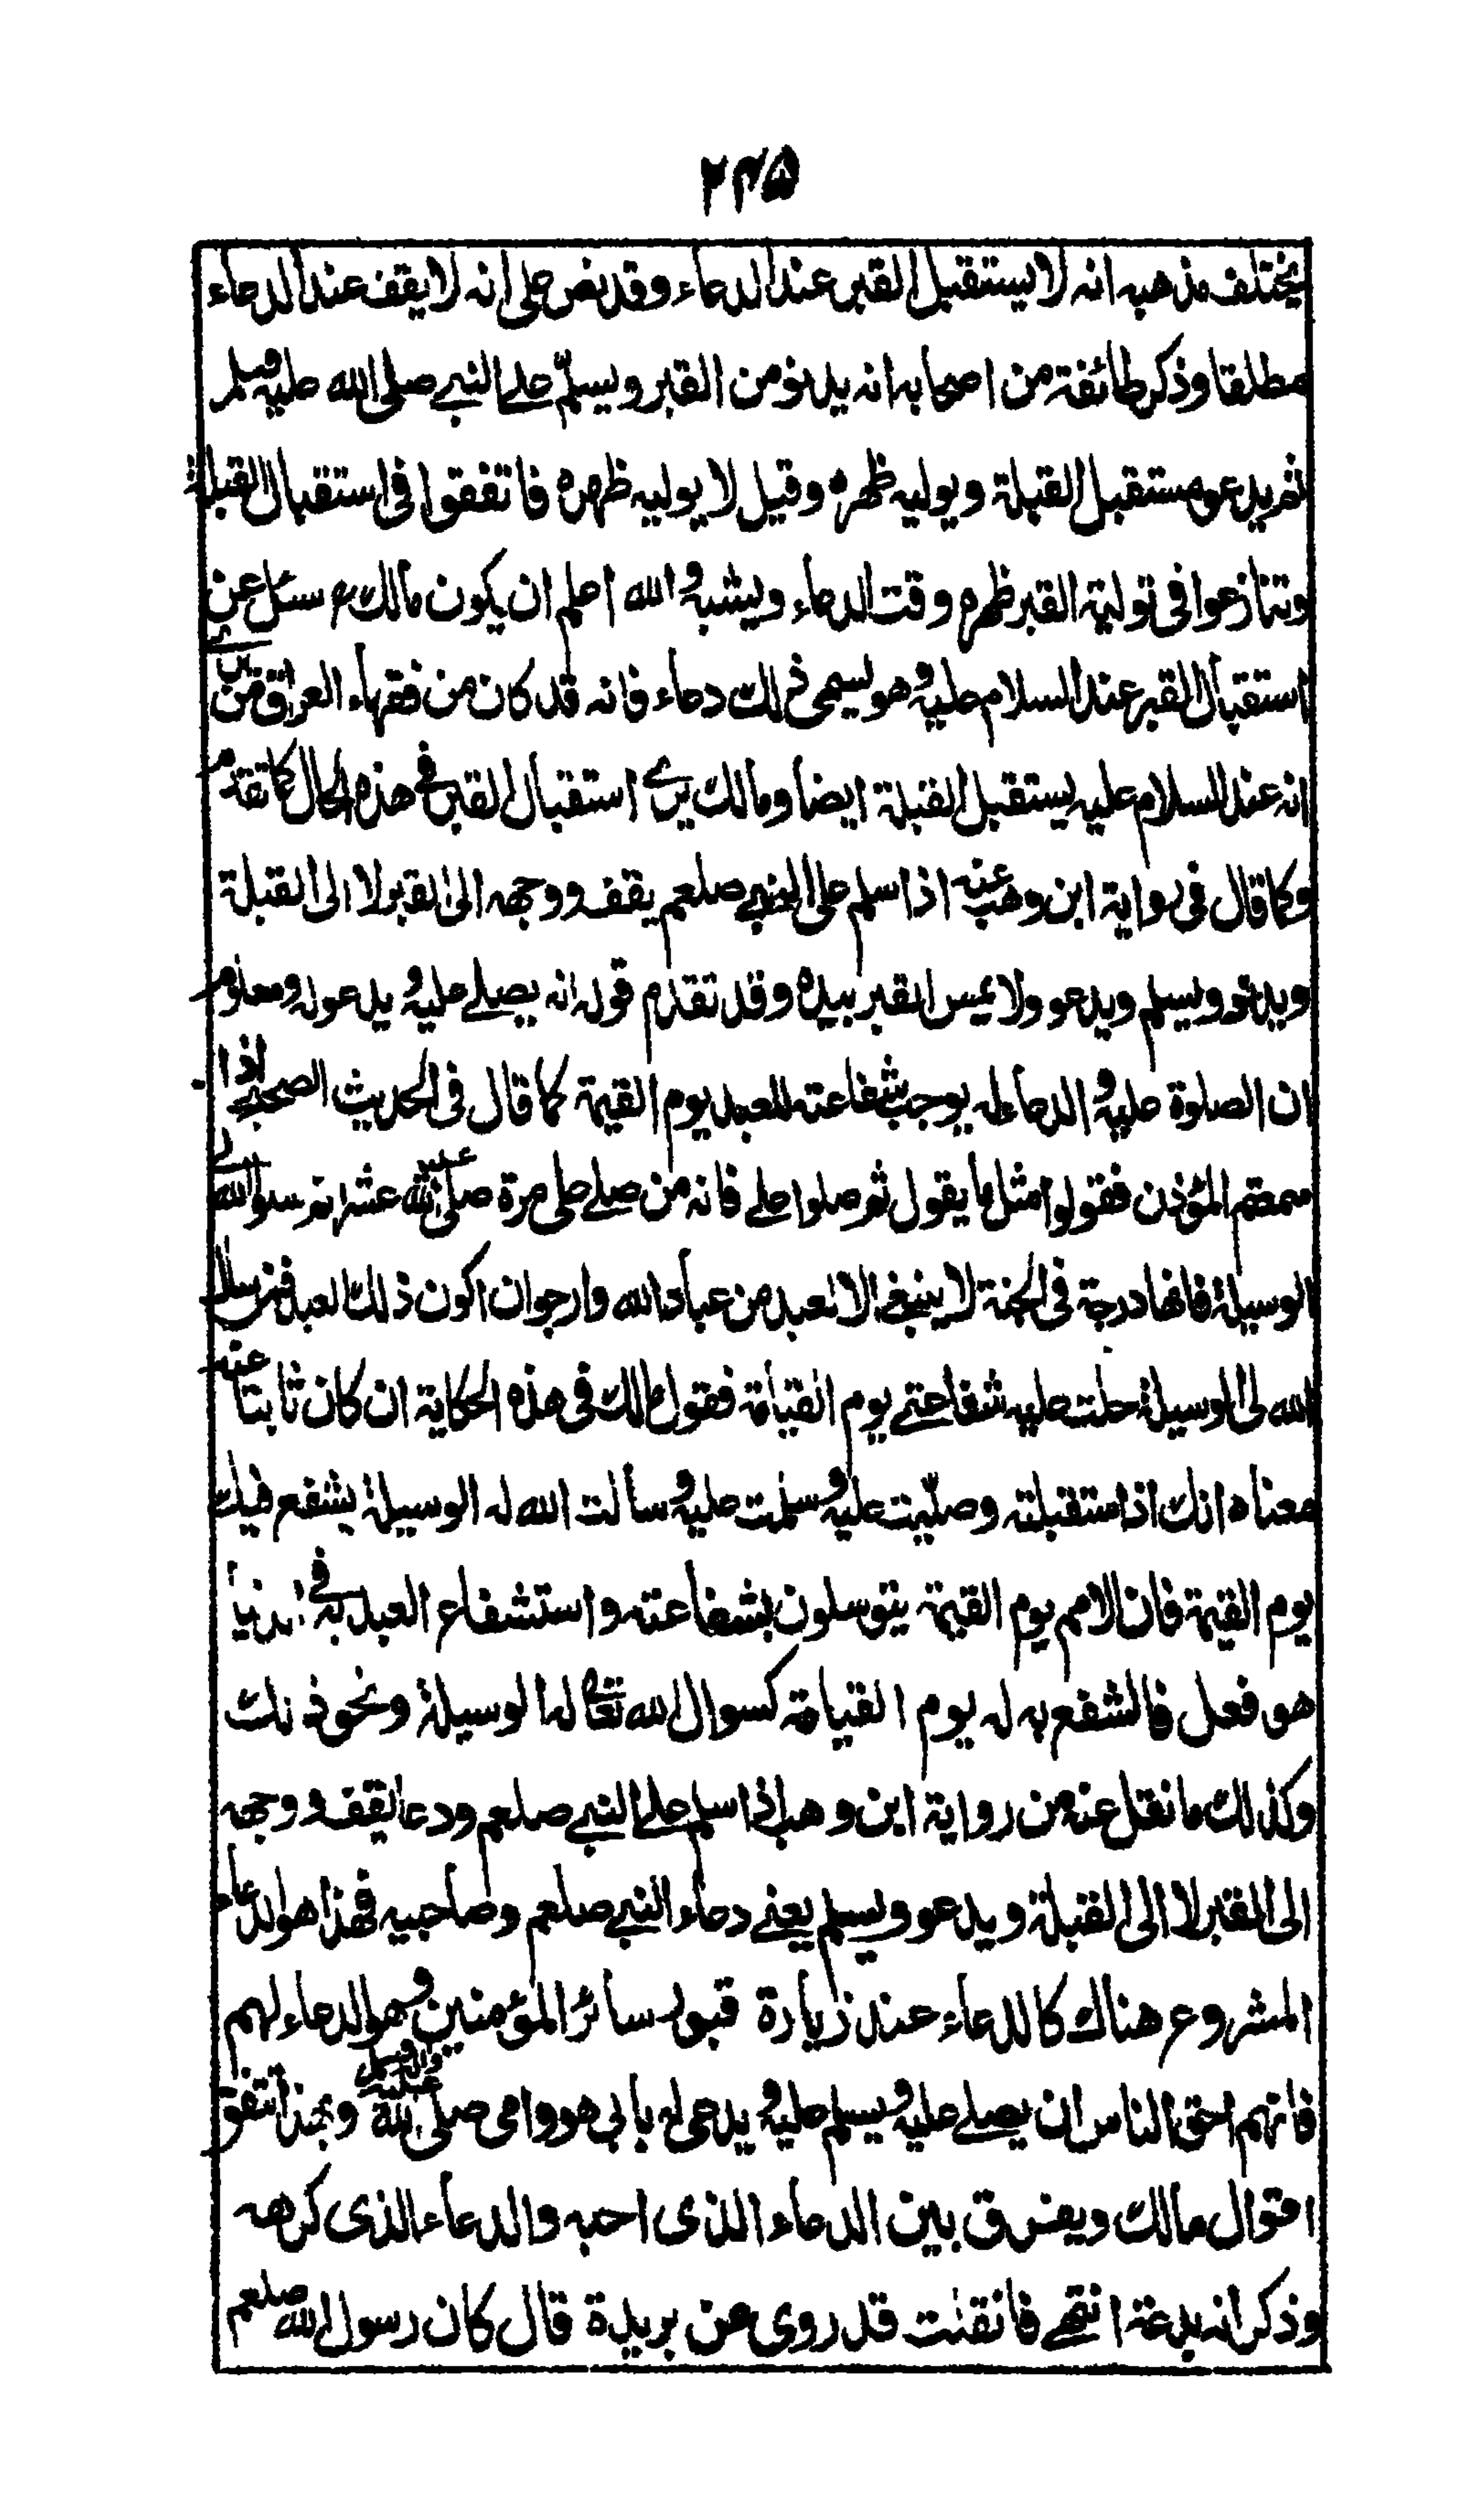 ٢٤٥
يختلف مذهبه انه لا يستقبل القبر عند الدعاء وقد نص على انه لا يقف عند الدعاء
مطلقا وذكر طائفة من اصحابه انه يدنو من القبر ويسلم على النبي صلى الله عليه وسلم
ثم يدعو مستقبل القبلة ويوليه ظهره وقيل لا يوليه ظهره فاتفقوا فى استقبال القبلة
وتنازعوا فى تولية القبر ظهره وقت الدعاء ويشبه والله اعلم ان يكون مالك سئل عن
استقبال القبر عند السلام عليه وهو يسمى ذلك دعاء فانه قد كان من فقهاء العراق من يرى
انه عند السلام عليه يستقبل القبلة ايضا ومالك يرى استقبال القبر فى هذه الحال كما تقدم
وكما قال فى رواية ابن وهب عنه اذا سلم على النبي صلعم يقف ووجهه الى القبر لا الى القبلة
ويدنو ويسلم ويدعو ولا يمس القبر بيده وقد تقدم قوله انه يصلى عليه ويدعو له ومعلوم
ان الصلوة عليه والدعاء له يوجب شفاعته للعبد يوم القيمة كما قال فى الحديث الصحيح اذا
سمعتم المؤذن فقولوا مثل ما يقول ثم صلوا على فانه من صلى على مرة صلى الله عليه عشرا ثم سلوا الله لى
الوسيلة فانها درجة فى الجنة لا ينبغى الا لعبد من عباد الله وارجو ان اكون ذلك العبد فمن سأل
الله لى الوسيلة حلت عليه شفاعتى يوم القيامة فقول مالك فى هذه الحكاية ان كان ثابتا عنه
معناه انك اذا استقبلته وصليت عليه وسلمت عليه وسألت الله له الوسيلة يشفع فيك
يوم القيمة فان الامم يوم القيمة يتوسلون بشفاعته واستشفاع العبد به فى الدنيا
هو فعل ما يشفع به له يوم القيامة كسوال الله تعالى له الوسيلة ونحو ذلك
وكذلك ما نقل عنه من رواية ابن وهب اذا سلم على النبي صلعم ودعا يقف ووجهه
الى القبر لا الى القبلة ويدعو ويسلم يعنى دعاء النبي صلعم وصاحبيه فهذا هو الدعاء
المشروع هناك كالدعاء عند زيارة قبور سائر المؤمنين وهو الدعاء لهم
فانهم احق الناس ان يصلى عليه ويسلم عليه ويدعى له بابى هو وامى صلى الله عليه وسلم وبهذا تتفق
اقوال مالك ويفرق بين الدعاء الذى احبه والدعاء الذى كرهه
وذكر انه بدعة انتهى فان قلت قد روى عن بريدة قال كان رسول الله صلعم